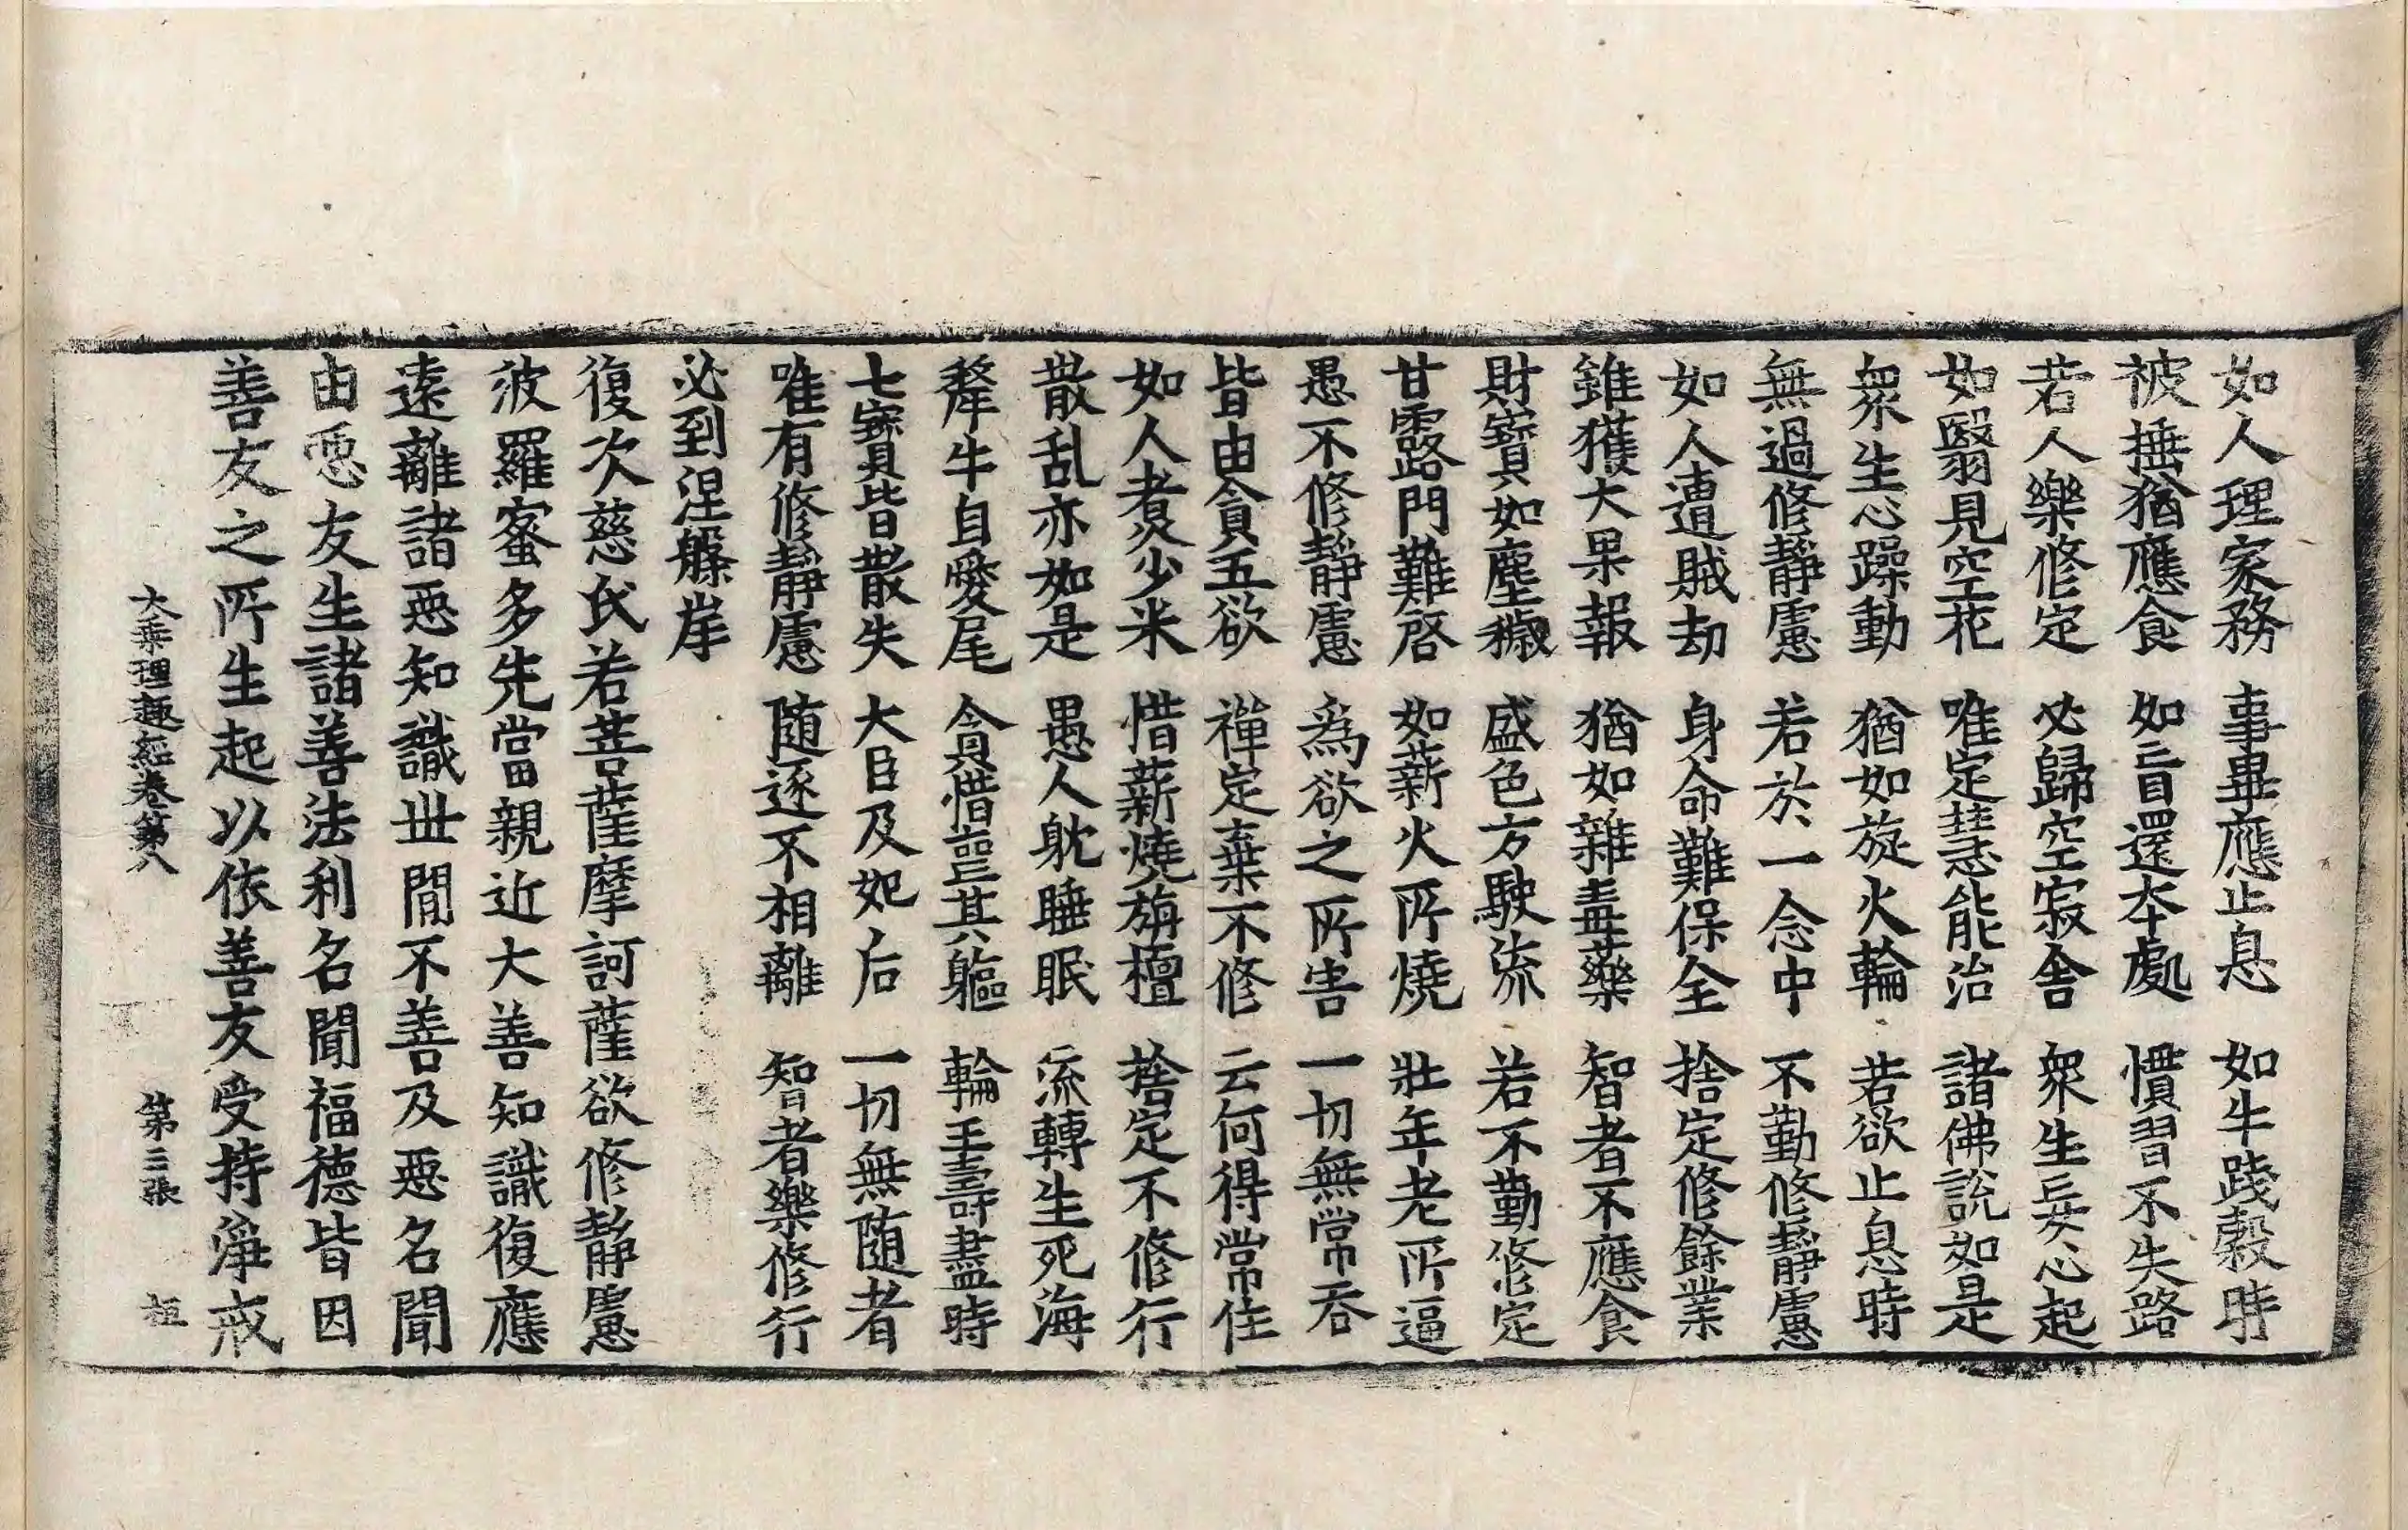 如人理家務　事畢應止息　如牛踐穀時
被捶猶應食　如盲還本處　慣習不失路
若人樂修定　必歸空寂舍　衆生妄心起
如翳見空花　唯定慧能治　諸佛說如是
衆生心躁動　猶如旋火輪　若欲止息時
無過修靜慮　若於一念中　不勤修靜慮
如人遭賊劫　身命難保全　捨定修餘業
雖獲大果報　猶如雜毒藥　智者不應食
財寶如塵穢　盛色方駛流　若不勤修定
甘露門難啓　如薪火所燒　壯年老所逼
愚不修靜慮　爲欲之所害　一切無常吞
皆由貪五欲　禪定棄不修　云何得常住
如人煮少米　惜薪燒旃檀　捨定不修行
散乱亦如是　愚人躭睡眠　流轉生死海
犛牛自愛尾　貪惜喪其軀　輪王壽盡時
七寶皆散失　大臣及妃后　一切無随者
唯有修靜慮　随逐不相離　智者樂修行
必到涅槃岸
復次慈氏若菩薩摩訶薩欲修靜慮
波羅蜜多先當親近大善知識復應
遠離諸惡知識世間不善及惡名聞
由惡友生諸善法利名聞福德皆因
善友之所生起以依善友受持淨戒
大乘理趣經卷第八　第三張　桓